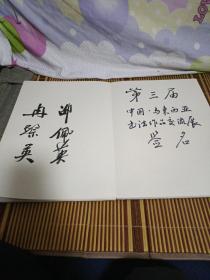 第三届
中国·马来西亚
书法作品交流展
签名
佩
冉
英